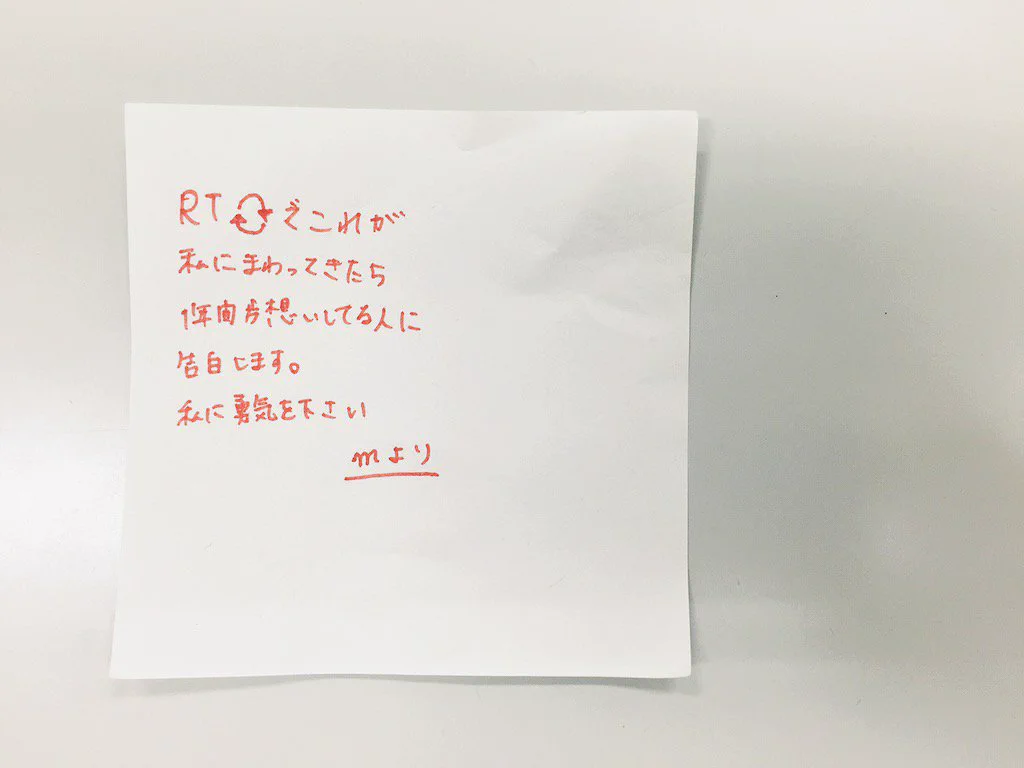 RT🔁でこれが
私にまわってきたら
1年間片想いしてる人に
告白します。
私に勇気を下さい
mより